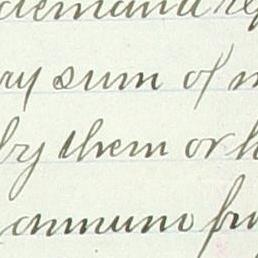 demand
ry sum of
by them or
annum